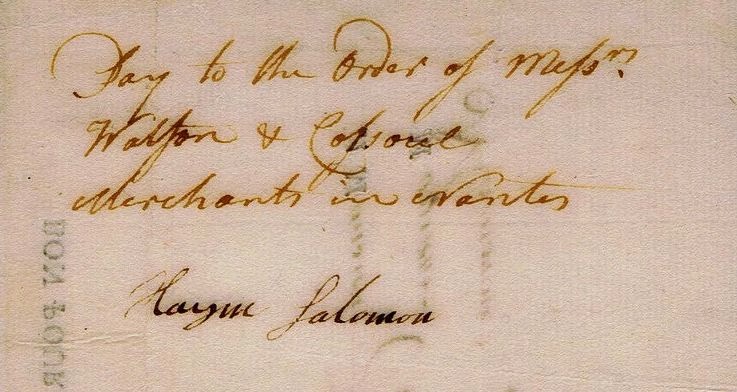 Pay to the Order of Messrs
Watson & Cossoul
Merchants in Nantes
Haym Salomon
BON POUR